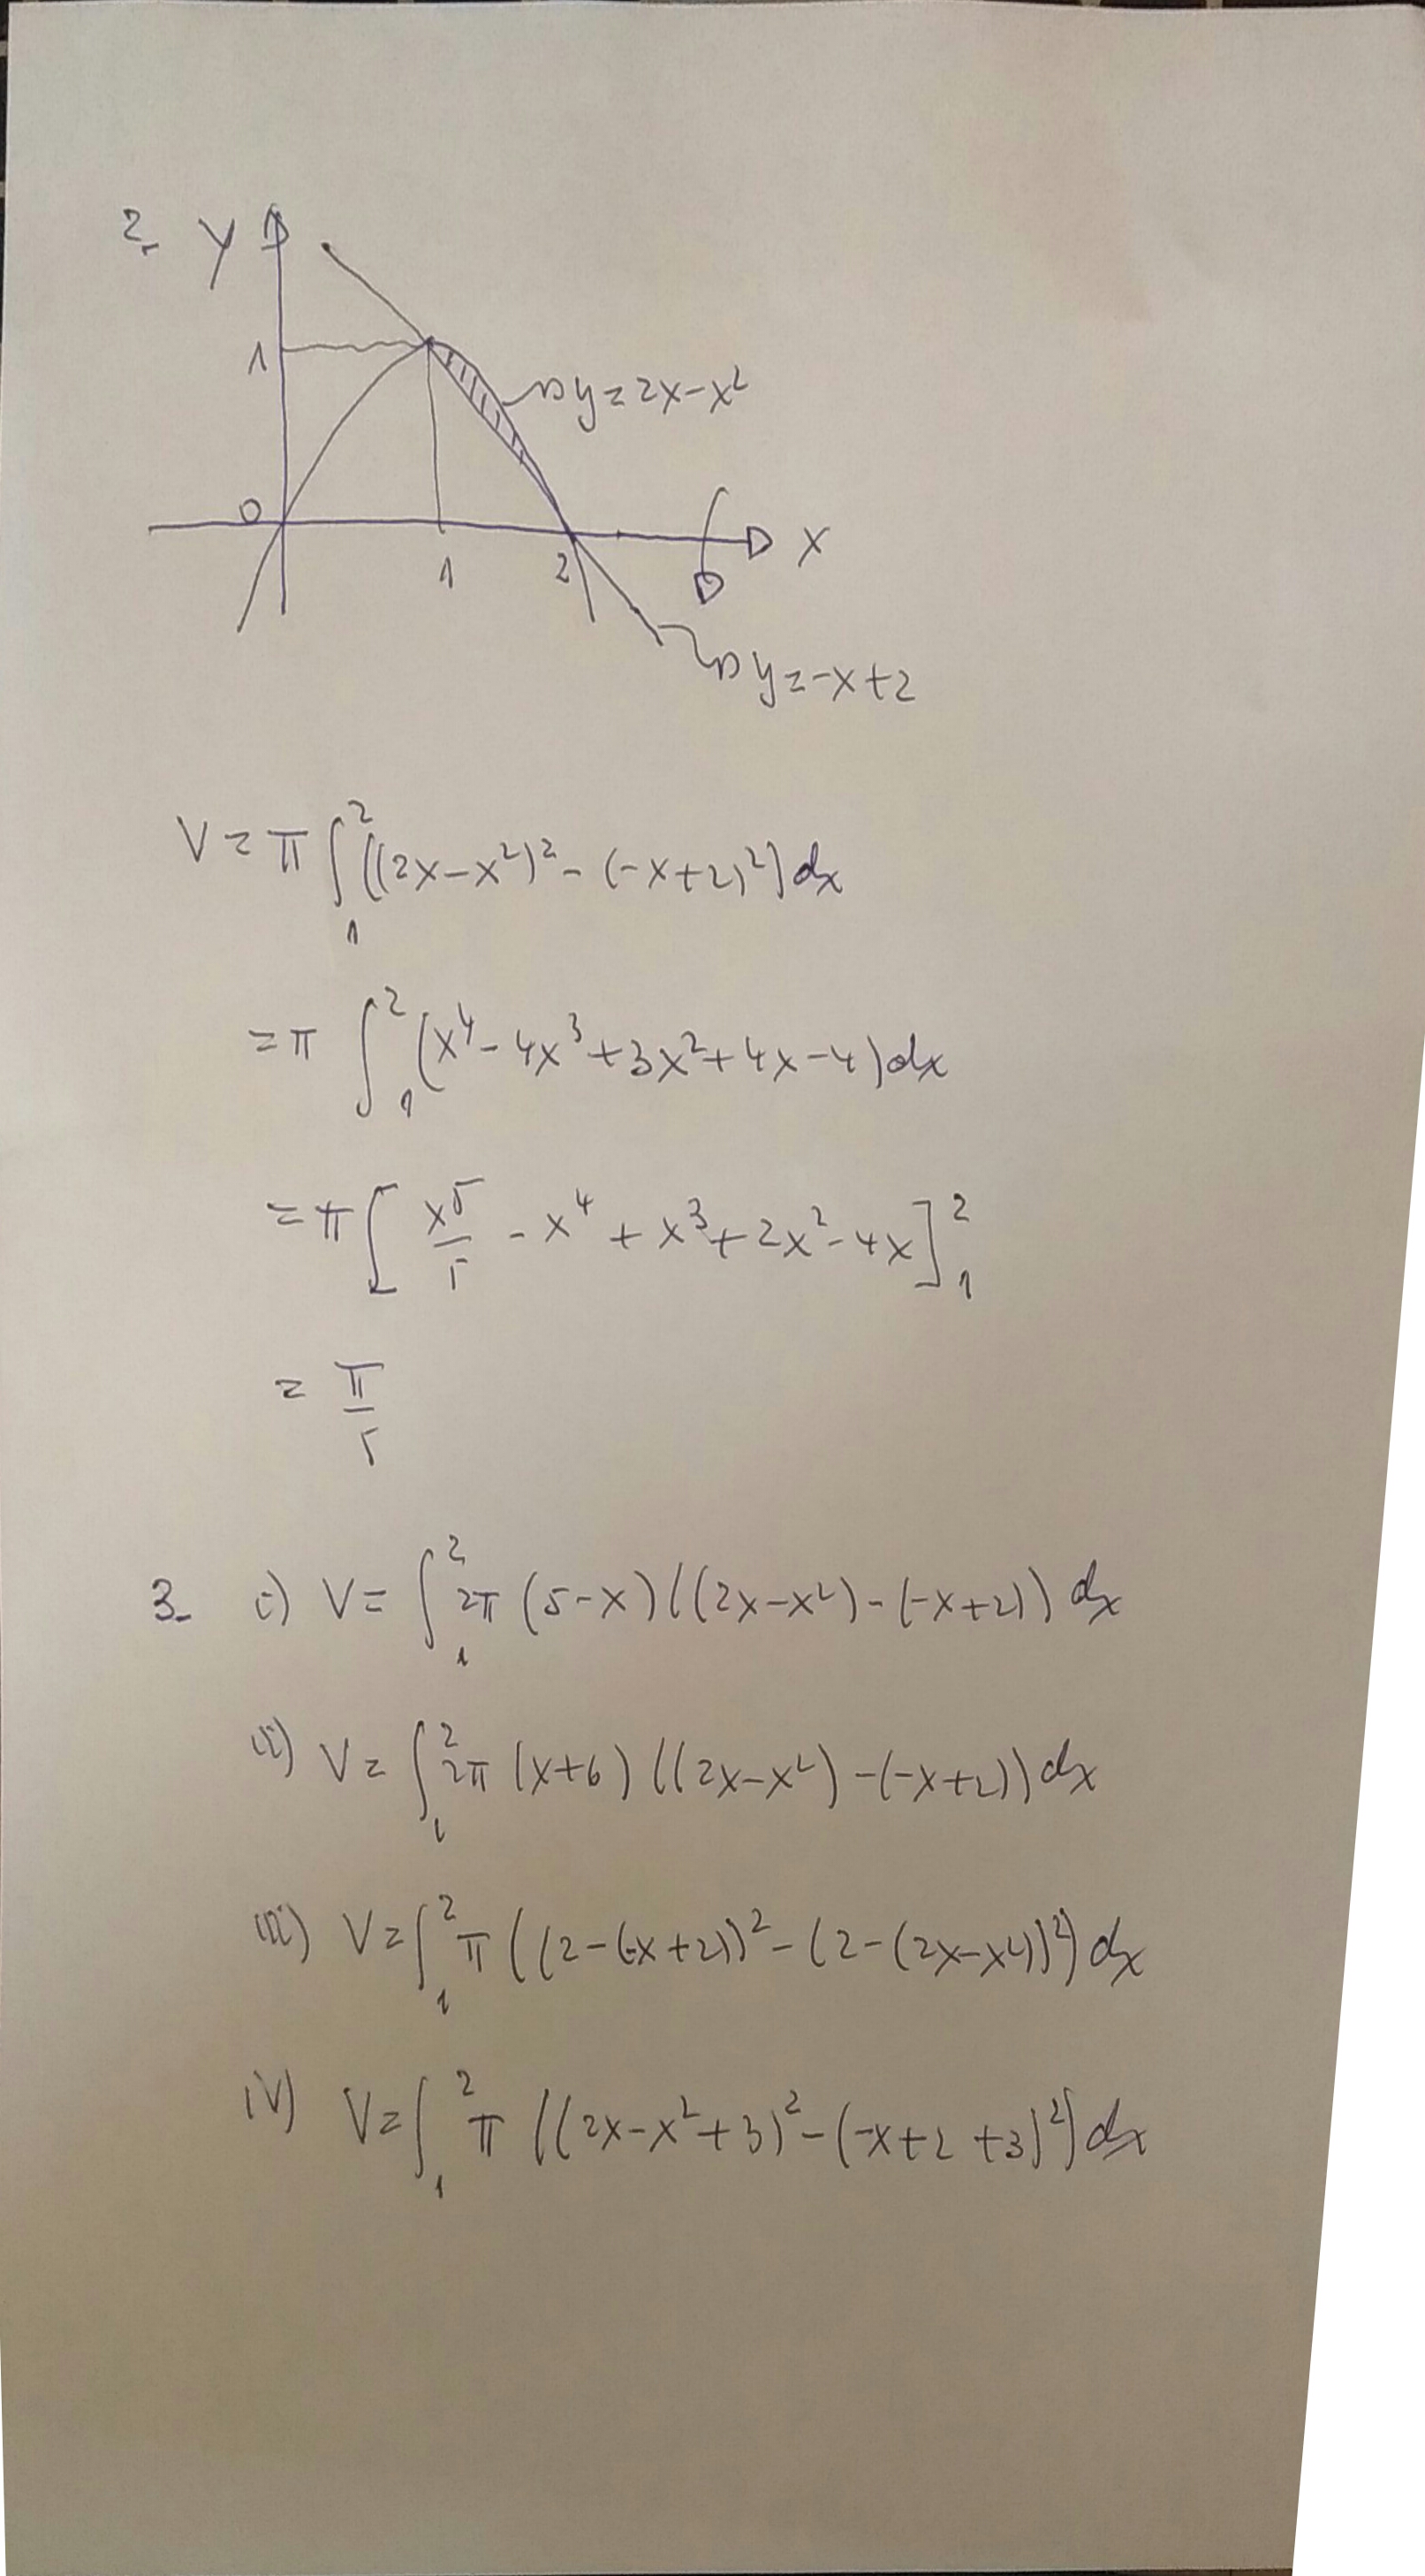 2. y
1
y = 2x - x²
0
1 2 x
y = -x + 2
V = π ∫₁² ((2x - x²)² - (-x + 2)²) dx
= π ∫₁² (x⁴ - 4x³ + 3x² + 4x - 4) dx
= π [x⁵/5 - x⁴ + x³ + 2x² - 4x]₁²
= π/5
3. i) V = ∫₁² 2π (5 - x) ((2x - x²) - (-x + 2)) dx
ii) V = ∫₁² 2π (x + 6) ((2x - x²) - (-x + 2)) dx
iii) V = ∫₁² π ((2 - (-x + 2))² - (2 - (2x - x²))²) dx
iv) V = ∫₁² π ((2x - x² + 3)² - (-x + 2 + 3)²) dx